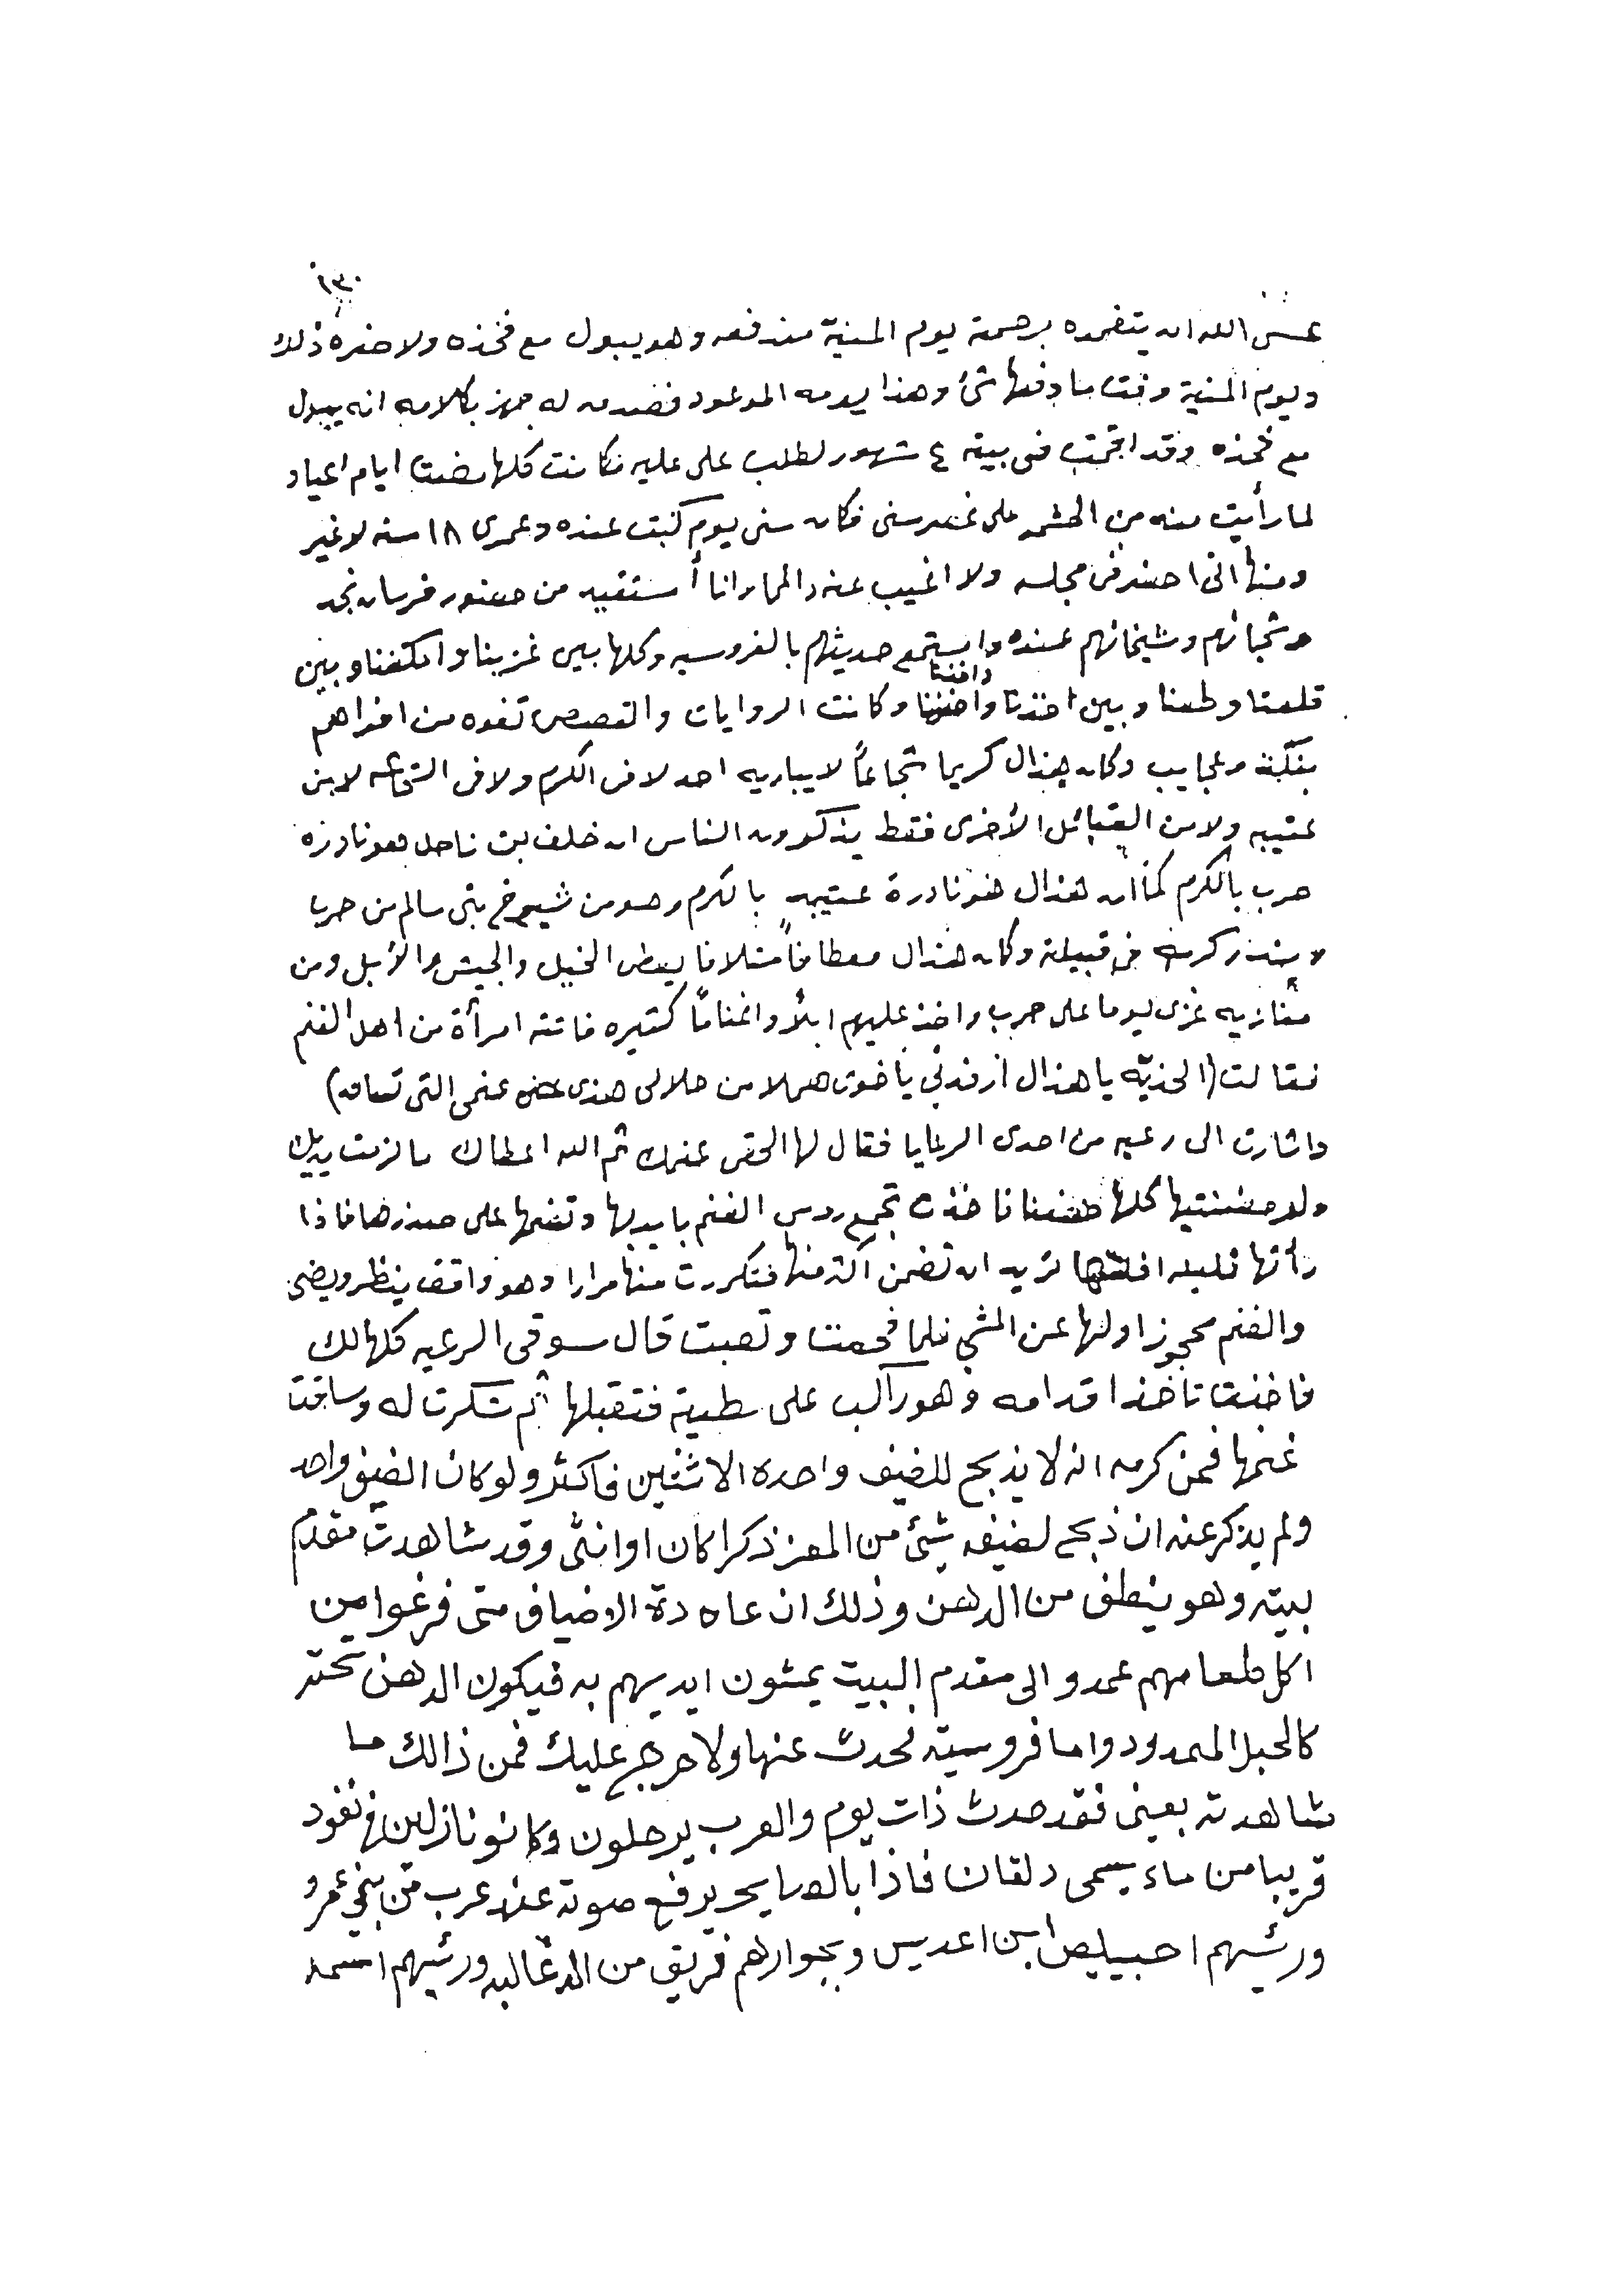 ١٣٠
عسى الله ان يتغمده برحمته يوم المنية مندفعه وهو يبول مع فخذه ولا ضره ذلك
ويوم المنية وفت ما دفعها شئ وهذا يومه الموعود فضد له جهز بكلامه انه يبول
مع فخذه وقد اقمت في بيته ٤ شهور لطلب على عليه فكانت كلها مضت ايام اعياد
لما رأيت منه من الحشمه على صغر سني فكان سني يوم كنت عنده وعمري ١٨ سنه لا غير
ومنها اني احضر في مجلسه ولا اغيب عنه دائما وانا أستفيد من حضور فرسان نجد
وشجعانهم وشيخانهم عنده واستمع حديثهم بالفروسيه وكلها بين غزينا وانكفنا وبين
قلعنا وطعنا وبين اخذنا واخذنا وكانت الروايات والقصص تفوه من افواههم
بنكت وعجايب وكان هذال كريما شجاعاً لا يباريه احد لا في الكرم ولا في الشجاعه لا من
عتيبه ولا من القبائل الأخرى فقط يذكرون الناس ان خلف بن ناحل هو نادرة
حرب بالكرم كما أن هذال هو نادرة عتيبه بالكرم وهو من شيوخ بني سالم من حرب
ويندر كرمه في قبيلته وكان هذال معطافاً متلافا يعطى الخيل والجيش والأبل ومن
مغازيه غزى يوما على حرب واخذ عليهم ابلاً واغناماً كثيره فاتته امرأة من اهل الغنم
فقالت (الحذيّه يا هذال ارفدني يا خوي هملا من حلالى هذى غنمى التى تساق)
واشارت الى رعيه من احدى الرعايا فقال لها الحقى غنمك ثم الله اعطاك ما لزمت يديك
ولو حضنتيها كلها فاخذت تجمع روس الغنم بايديها وتضمها على صدرها فاذا
رأتها قليله افلتتها تريد ان تضمن اكثر منها فتكررت منها مرارا وهو واقف ينظر ويضحك
والغنم محجوز اولها عن المشي فلما فحمت وتعبت قال سوقى الرعيه كلها لك
فاخذت تاخذ اقدامه وهو راكب على مطيته فتقبلها ثم شكرت له وساقت
غنمها فمن كرمه انه لا يذبح للضيف واحده الا ثنتين فاكثر ولو كان الضيف واحد
ولم يذكر عنه ان ذبح لضيفه شيئ من المعز ذكرا كان او انثى وقد شاهدت مقدم
بيته وهو ينطف من الدهن وذلك ان عادة الاضياف متى فرغوا من
اكل طعامهم عمدو الى مقدم البيت يمشون ايديهم به فيكون الدهن تحته
كالحبل الممدود واما فروسيته فحدث عنها ولا حرج عليك فمن ذالك ما
شاهدته بعيني فقد حدث ذات يوم والعرب يرحلون وكانو نازلين في نفود
قريبا من ماء يسمى دلقان فاذا بالصايح يرفع صوته عند عرب من بني عمرو
ورئسهم احبيليص ابن اعديس وبجوارهم فريق من الدغالبه ورئيهم اسمه